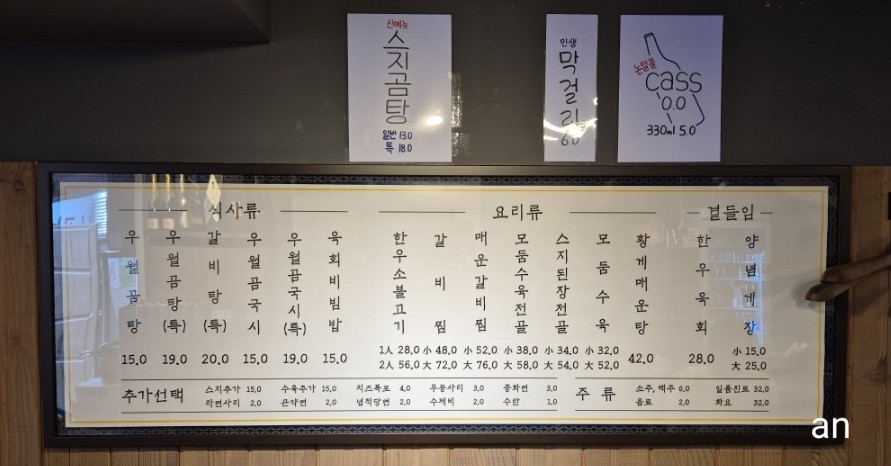 신메뉴
스지곰탕
일반 13.0
특 18.0
인생
막걸리
6.0
논알콜
cass
0.0
330ml 5.0
식사류
우월곰탕 15.0
우월곰탕(특) 19.0
갈비탕(특) 20.0
우월곰국시 15.0
우월곰국시(특) 19.0
육회비빔밥 15.0
요리류
한우소불고기 1人 28.0 2人 56.0
갈비찜 小 48.0 大 72.0
매운갈비찜 小 52.0 大 76.0
모둠수육전골 小 38.0 大 58.0
스지된장전골 小 34.0 大 54.0
모둠수육 小 32.0 大 52.0
황게매운탕 42.0
곁들임
한우육회 28.0
양념게장 小 15.0 大 25.0
추가선택
스지추가 15.0 수육추가 15.0 치즈폭포 4.0 우동사리 3.0 중화면 3.0
라면사리 2.0 곤약면 2.0 넙적당면 2.0 수제비 2.0 수란 1.0
주류
소주, 맥주 6.0 일품진로 32.0
음료 2.0 화요 32.0
an